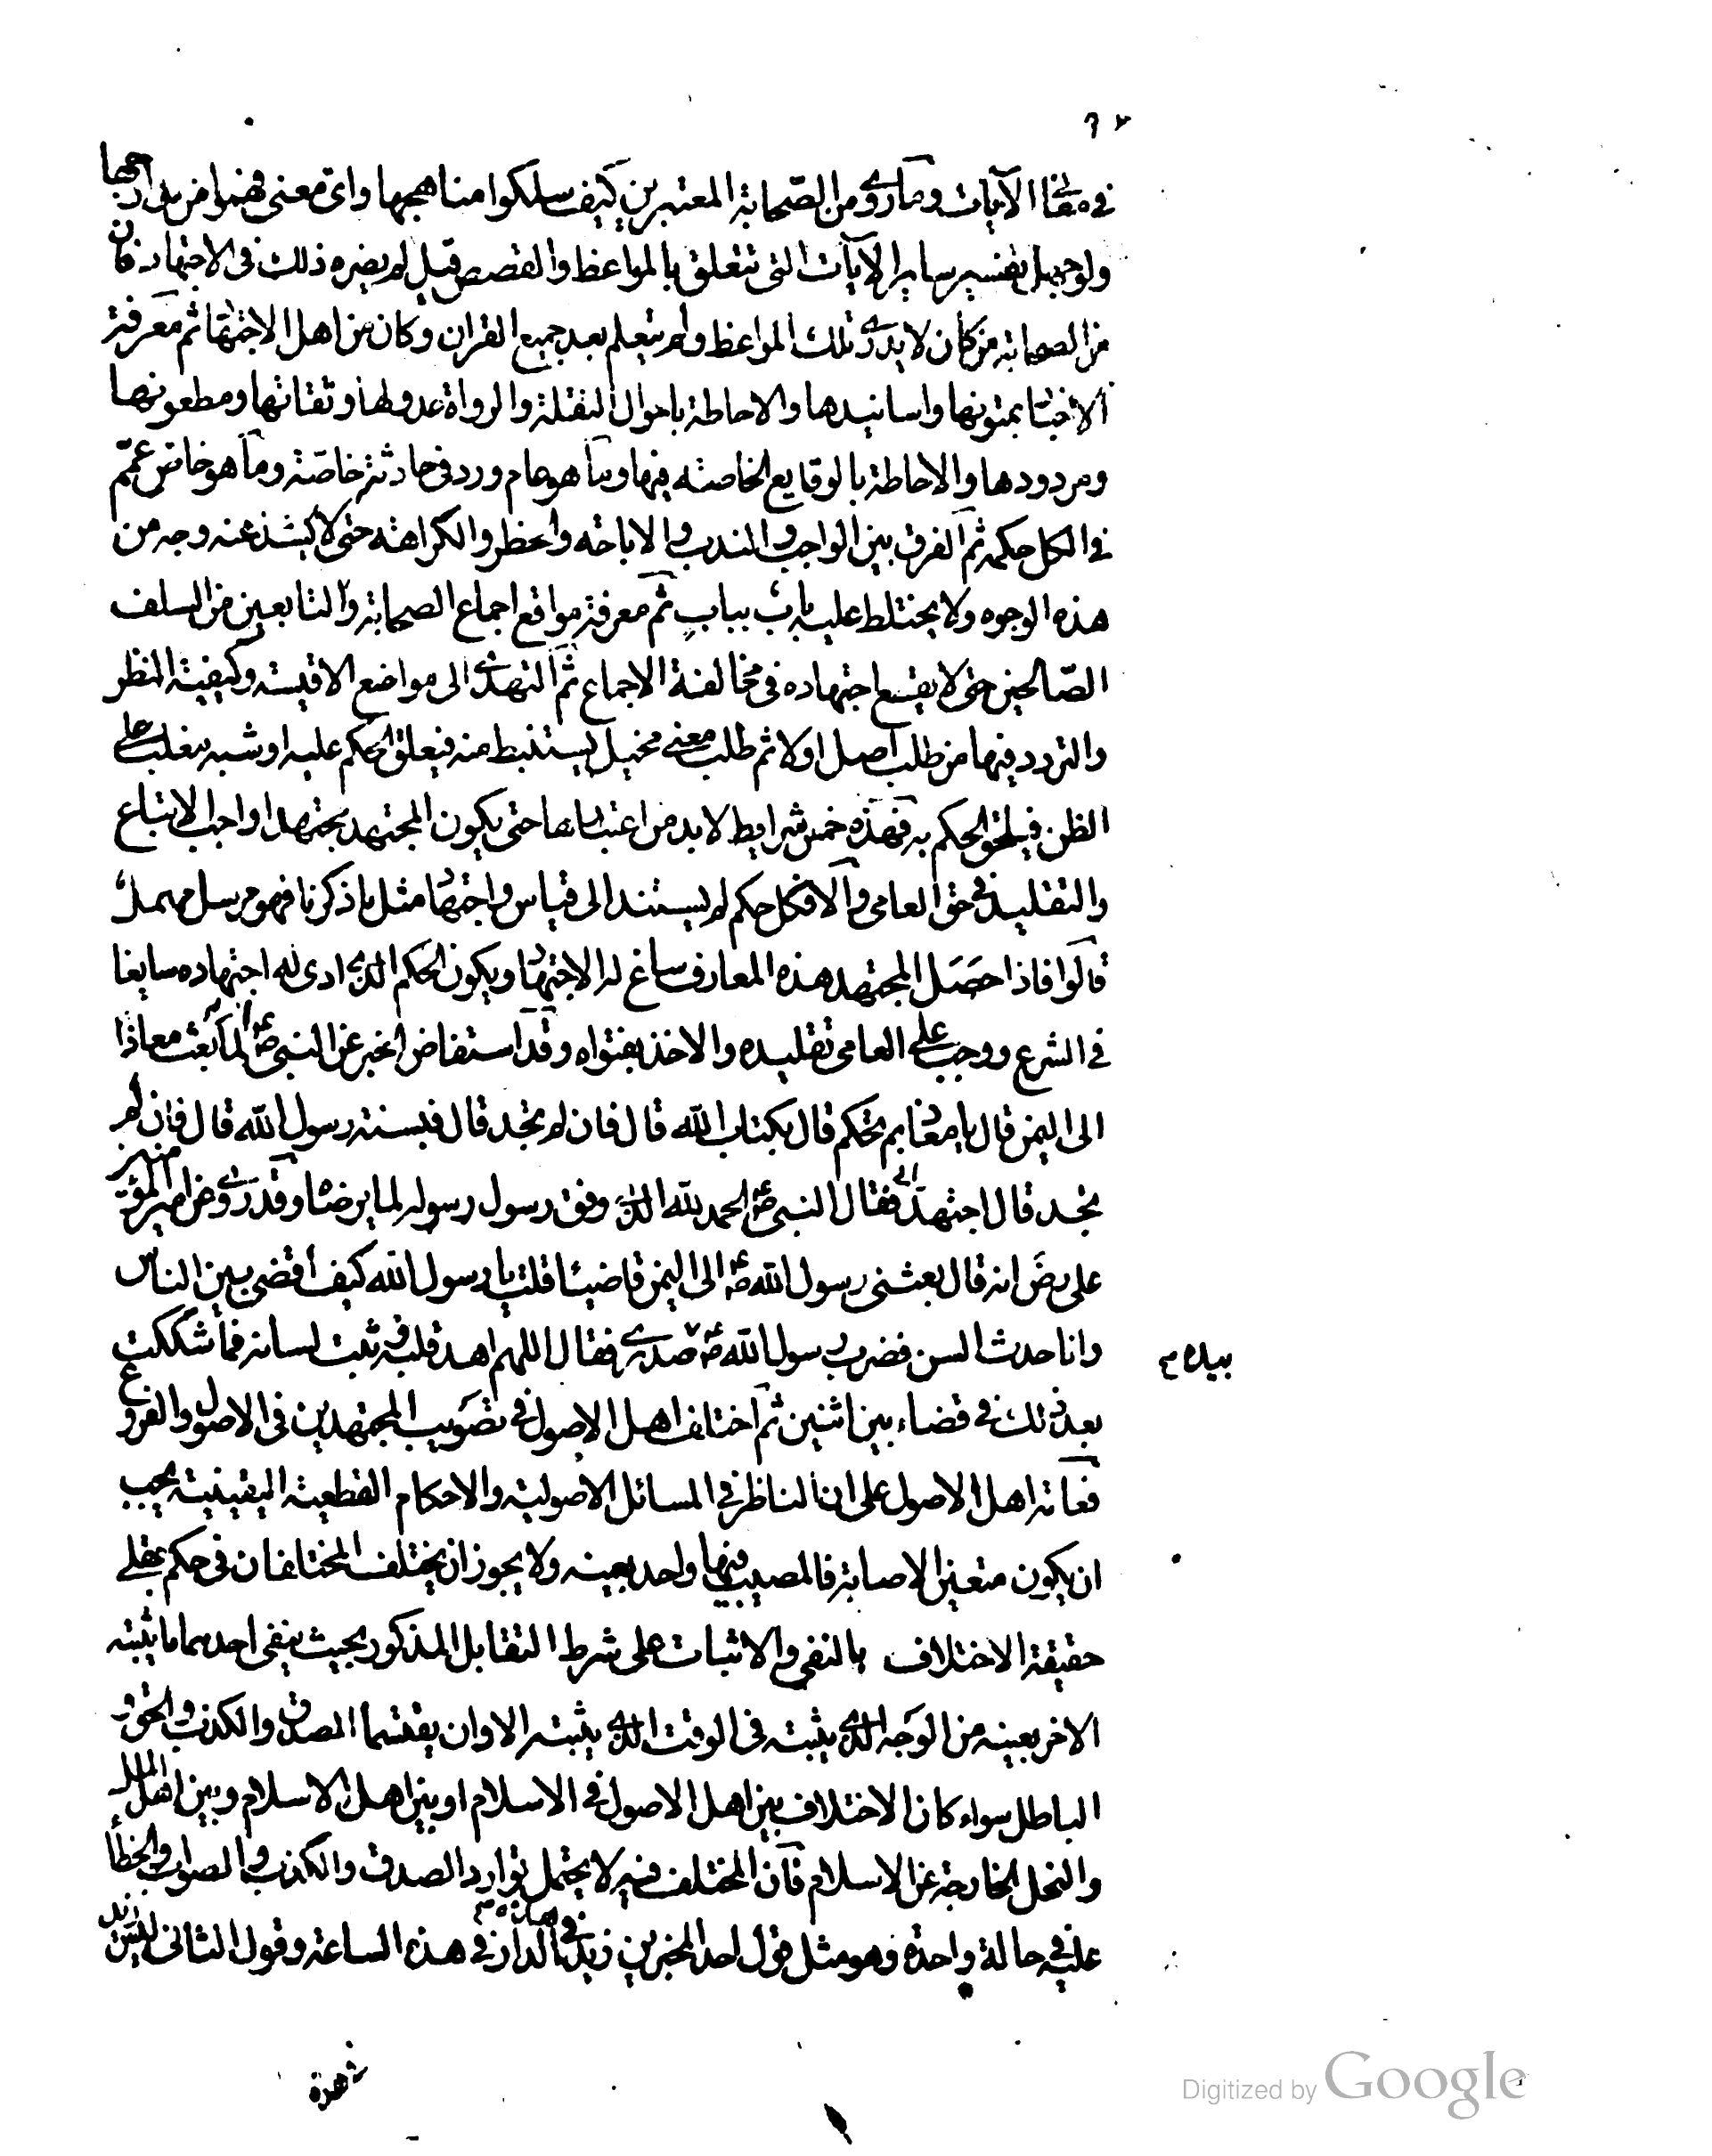 في معاني الآيات وما روى من الصحابة المعتبرين كيف سلكوا مناهجها واى معنى فهموا من مدارجها
ولو جهل تفسير ساير الآيات التى تتعلق بالمواعظ والقصص قيل لم يضره ذلك فى الاجتهاد فان
من الصحابة من كان لا يدرى تلك المواعظ ولم يتعلم بعد جميع القران وكان من اهل الاجتهاد ثم معرفة
الاخبار بمتونها واسانيدها والاحاطة باحوال النقلة والرواة عدولها وثقاتها ومطعونها
ومردودها والاحاطة بالوقايع الخاصة فيها وما هو عام ورد فى حادثة خاصة وما هو خاص عمم
فى الكل حكمه ثم الفرق بين الواجب والندب والاباحة والحظر والكراهة حتى لا يشذ عنه وجه من
هذه الوجوه ولا يختلط عليه باب بباب ثم معرفة مواقع اجماع الصحابة والتابعين من السلف
الصالحين حتى لا يقع اجتهاده فى مخالفة الاجماع ثم التهدى الى مواضع الاقيسة وكيفية النظر
والتردد فيها من طلب اصل اولا ثم طلب معنى مخيل يستنبط منه فيعلق الحكم عليه او شبه يغلب على
الظن فيلحق الحكم به فهذه خمس شرايط لا بد من اعتبارها حتى يكون المجتهد مجتهدا واجب الاتباع
والتقليد فى حق العامى والا فكل حكم لم يستند الى قياس واجتهاد مثل ما ذكرنا فهو مرسل مهمل
قالوا فاذا حصل المجتهد هذه المعارف ساغ له الاجتهاد ويكون الحكم الذى ادى اليه اجتهاده سايغا
فى الشرع ووجب على العامى تقليده والاخذ بفتواه وقد استفاض الخبر عن النبى صلعم انه لما بعث معاذا
الى اليمن قال يا معاذ بم تحكم قال بكتاب الله قال فان لم تجد قال فبسنة رسول الله قال فان لم
تجد قال اجتهد رايى فقال النبى صلعم الحمد لله الذى وفق رسول رسوله لما يرضاه وقد روى عن امير المؤمنين
على رضَ انه قال بعثنى رسول الله صلعم الى اليمن قاضيا قلت يا رسول الله كيف اقضى بين الناس
وانا حدث السن فضرب رسول الله صلعم صدرى فقال اللهم اهد قلبه وثبت لسانه فما شككت
بيده
بعد ذلك فى قضاء بين اثنين ثم اختلف اهل الاصول فى تصويب المجتهدين فى الاصول والفروع
فعامة اهل الاصول على ان الناظر فى المسائل الاصولية والاحكام القطعية اليقينية يجب
ان يكون متعين الاصابة فالمصيب فيها واحد بعينه ولا يجوز ان يختلف المختلفان فى حكم عقلى
حقيقة الاختلاف بالنفى والاثبات على شرط التقابل المذكور بحيث ينفى احدهما ما يثبته
الاخر بعينه من الوجه الذى يثبته فى الوقت الذى يثبته الا وان يقتسما الصدق والكذب والحق و
الباطل سواء كان الاختلاف بين اهل الاصول فى الاسلام او بين اهل الاسلام وبين اهل الملل
والنحل الخارجة عن الاسلام فان المختلف فيه لا يحتمل توارد الصدق والكذب والصواب والخطأ
عليه فى حالة واحدة وهو مثل قول احد المخبرين زيد فى هذه الدار فى هذه الساعة وقول الثانى ليس زيد
Digitized by Google